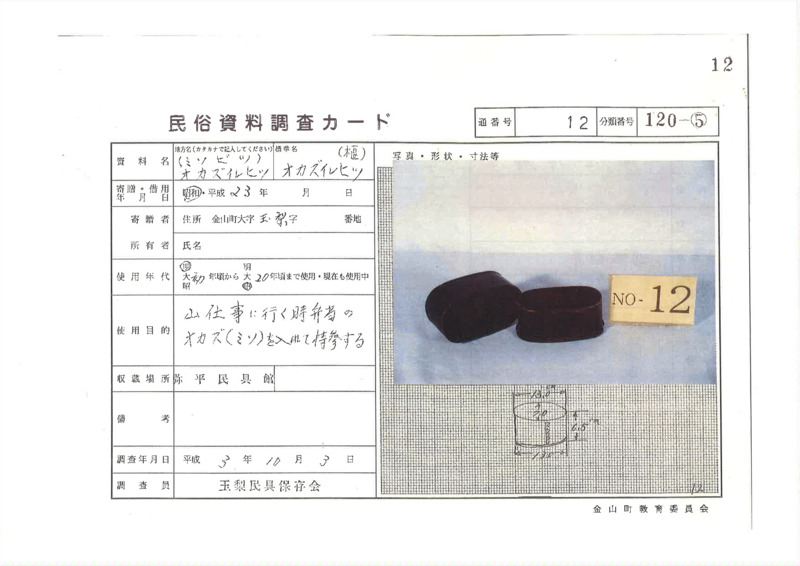 12
民俗資料調査カード
通番号 12 分類番号 120-⑤
資料名 地方名(カタカナで記入してください) (ミソビツ) オカズイレヒツ 標準名 オカズイレヒツ
写真・形状・寸法等
寄贈・借用年月日 昭和・平成 23年 月 日
寄贈者 住所 金山町大字玉梨字 番地
所有者 氏名
使用年代 明 大 昭 初年頃から 明 大 昭 20年頃まで使用・現在も使用中
使用目的 山仕事に行く時弁当の
オカズ(ミソ)を入れて持参する
収蔵場所 弥平民具館
備考
調査年月日 平成 3年 10月 3日
調査員 玉梨民具保存会
NO-12
13.0cm
7.0
6.5cm
13.0
12
金山町教育委員会